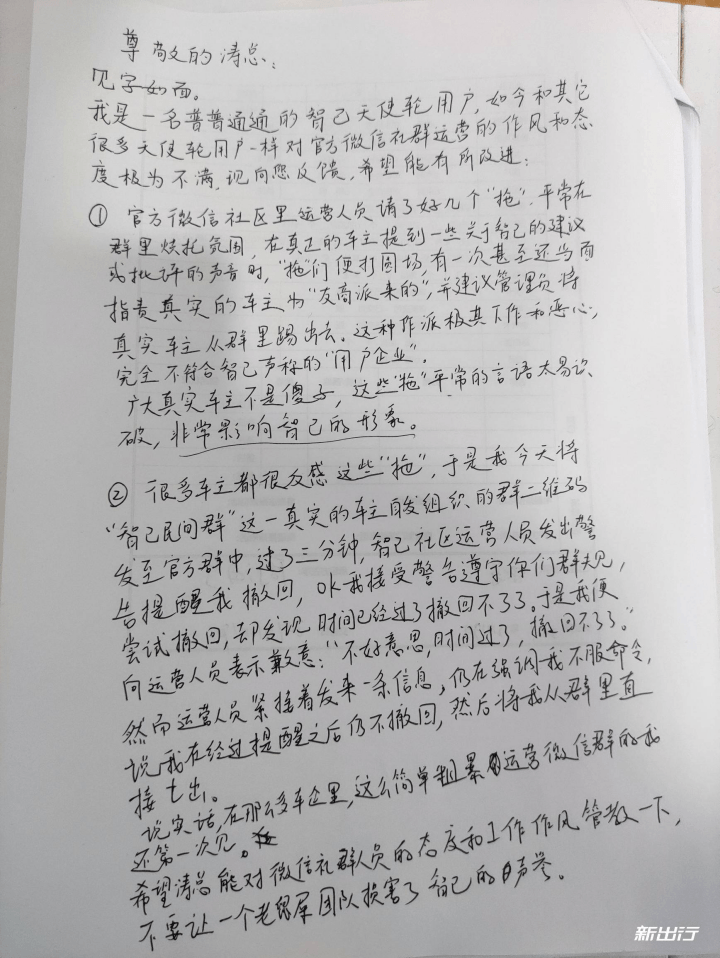 尊敬的涛总：
见字如面。
我是一名普普通通的智己天使轮用户，如今和其它
很多天使轮用户一样对官方微信社群运营的作风和态
度极为不满，现向您反馈，希望能有所改进：
① 官方微信社区里运营人员请了好几个“拖”，平常在
群里烘托氛围，在真正的车主提到一些关于智己的建议
或批评的声音时，“拖”们便打圆场，有一次甚至还当面
指责真实的车主为“友商派来的”，并建议管理员将
真实车主从群里踢出去。这种作派极其下作和恶心，
完全不符合智己声称的“用户企业”。
广大真实车主不是傻子，这些“拖”平常的言语太易识
破，非常影响智己的形象。
② 很多车主都很反感这些“拖”，于是我今天将
“智己民间群”这一真实的车主自发组织的群二维码
发至官方群中，过了三分钟，智己社区运营人员发出警
告提醒我撤回，OK我接受警告遵守你们群规，
尝试撤回，却发现时间已经过了撤回不了了。于是我便
向运营人员表示歉意：“不好意思，时间过了，撤回不了了。”
然而运营人员紧接着发来一条信息，仍在强调我不服命令，
说我在经过提醒之后仍不撤回，然后将我从群里直
接七出。
说实话，在那么多车企里，这么简单粗暴运营微信群的我
还第一次见。
希望涛总能对微信社群人员的态度和工作作风管教一下，
不要让一个老鼠屎团队损害了智己的声誉。
新出行